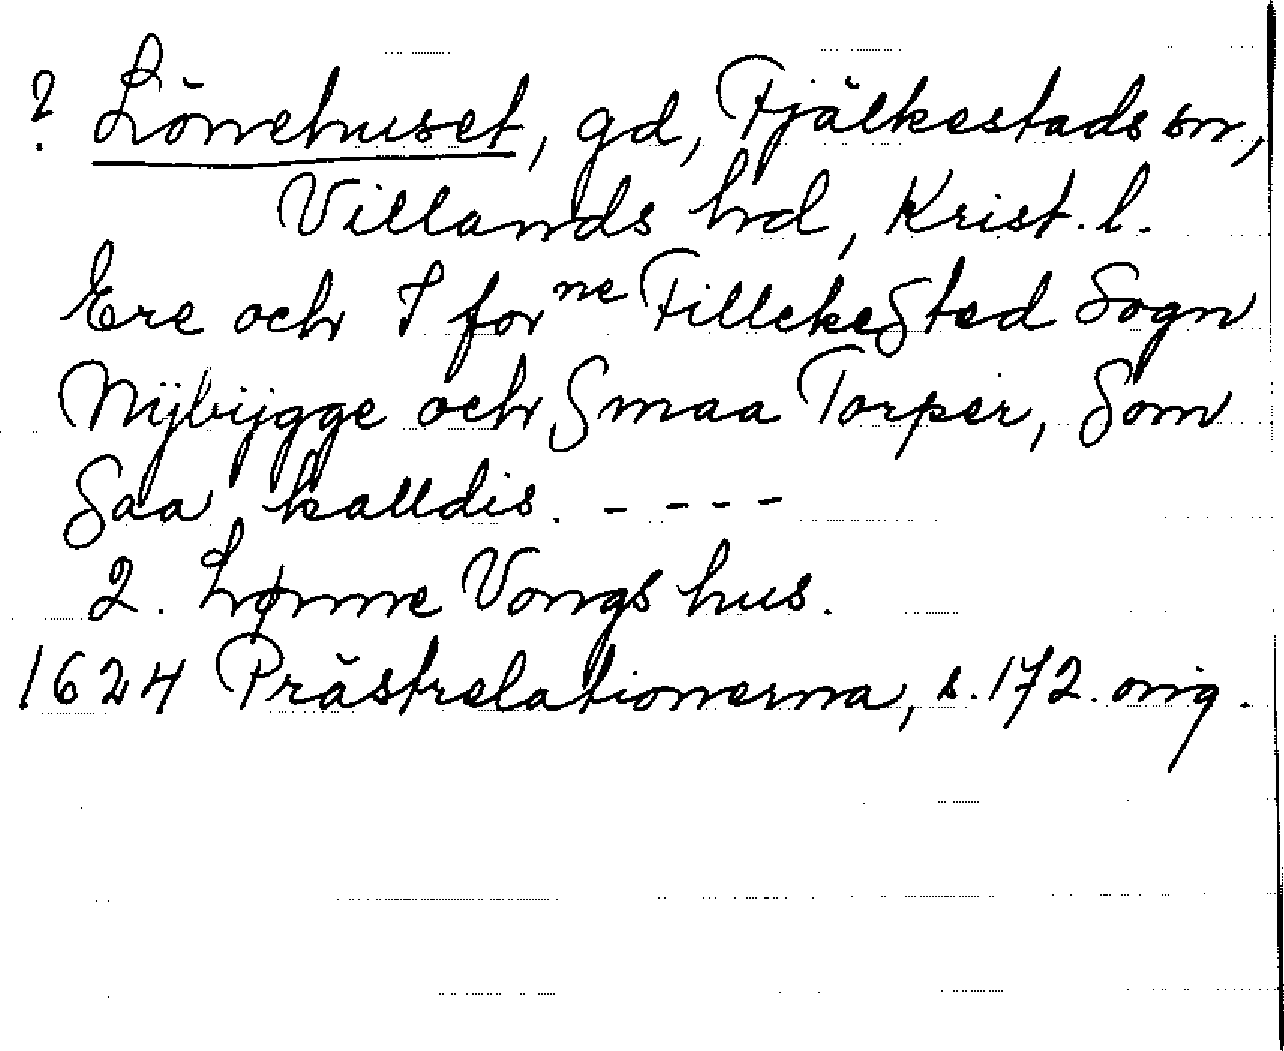 ? Lönnehuset, gd, Fjälkestads sn,
Villands hrd, Krist. l.
Ere och I for ne FillckeSted Sogn
Nÿbÿgge och Smaa Torper, Som
Saa kalldis. - - - -
2. Lønne Vongs hus.
1624 Prästrelationerna, s. 172. orig.